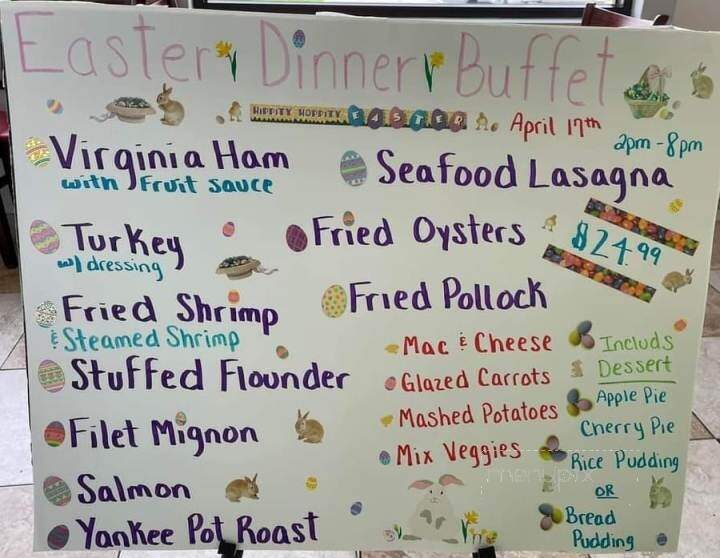 Easter Dinner Buffet
HIPPITY HOPPITY EASTER
April 17th
2pm - 8pm
Virginia Ham
with Fruit sauce
Turkey
w/ dressing
Fried Shrimp
& Steamed Shrimp
Stuffed Flounder
Filet Mignon
Salmon
Yankee Pot Roast
Seafood Lasagna
Fried Oysters
Fried Pollock
$24.99
Mac & Cheese
Glazed Carrots
Mashed Potatoes
Mix Veggies
Includs
Dessert
Apple Pie
Cherry Pie
Rice Pudding
OR
Bread
Pudding
menupix